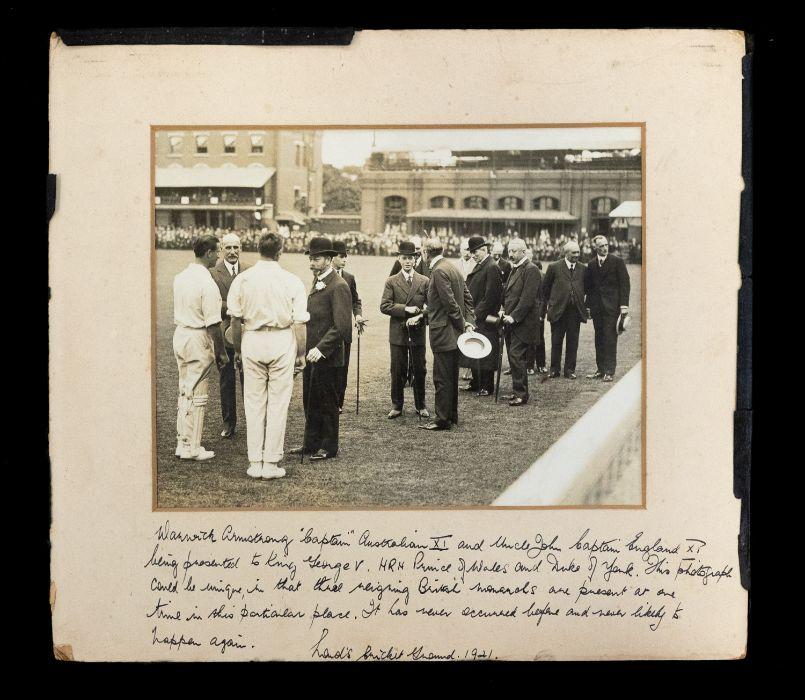 Warwick Armstrong "Captain" Australian XI and Uncle John Captain England XI
being presented to King George V. HRH Prince of Wales and Duke of York. This photograph
could be unique, in that three reigning British monarchs are present at one
time in this particular place. It has never occurred before and never likely to
happen again. Lord's Cricket Ground. 1921.